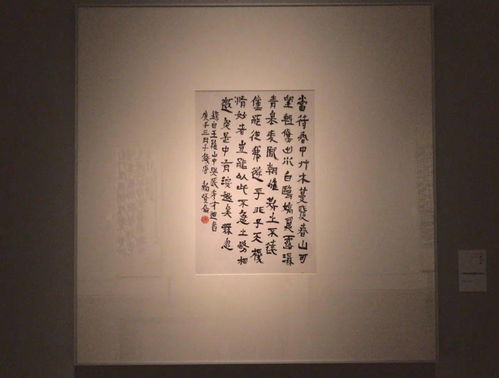 當待春中艸木蔓發春山可
望輕鯈出水白鷗矯翼露濕
青皋麥隴朝雊斯之不遠
儻能從我遊乎非子天機
清妙者豈能以此不急之務相
邀然是中有深趣矣無忽
錄自王維山中與裴秀才迪書
庚子三月于錢唐 鮑賢倫